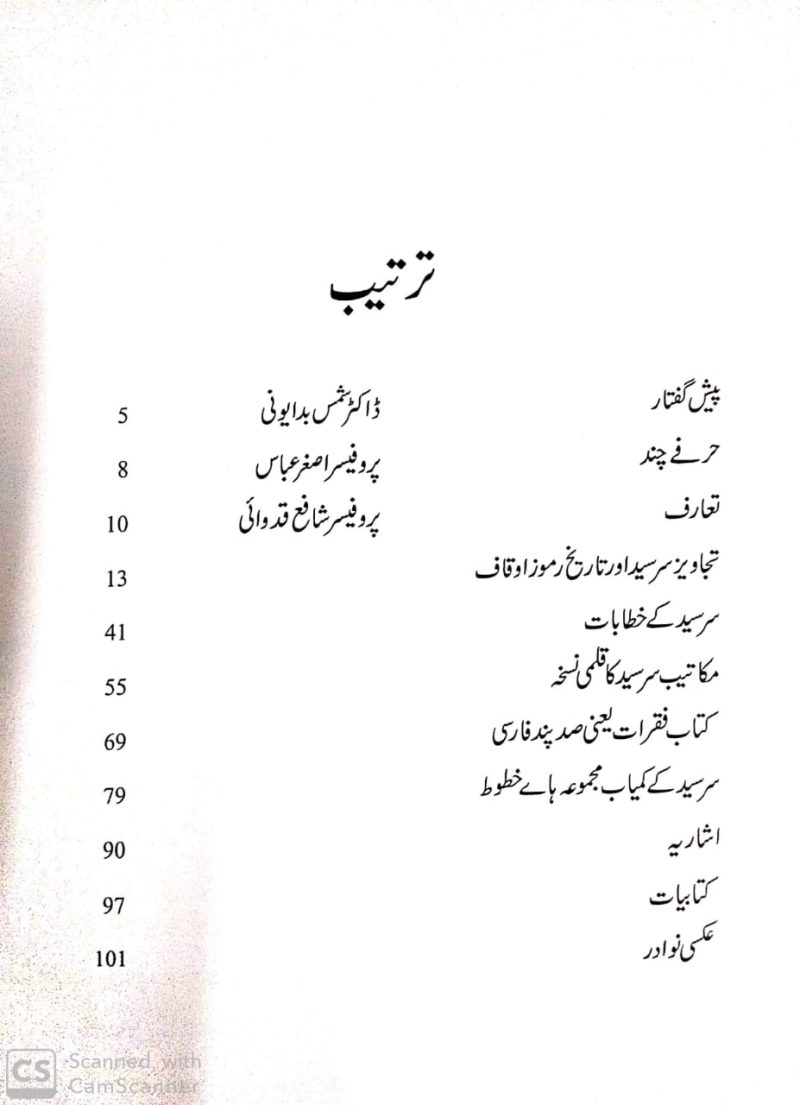 ترتیب
پیش گفتار ڈاکٹر شمس بدایونی 5
حرفے چند پروفیسر اصغر عباس 8
تعارف پروفیسر شافع قدوائی 10
تجاویز سرسید اور تاریخ رموز اوقاف 13
سرسید کے خطابات 41
مکاتیب سرسید کا قلمی نسخہ 55
کتاب فقرات یعنی صد پند فارسی 69
سرسید کے کمیاب مجموعہ ہاے خطوط 79
اشاریہ 90
کتابیات 97
عکسی نوادر 101
CS Scanned with
CamScanner